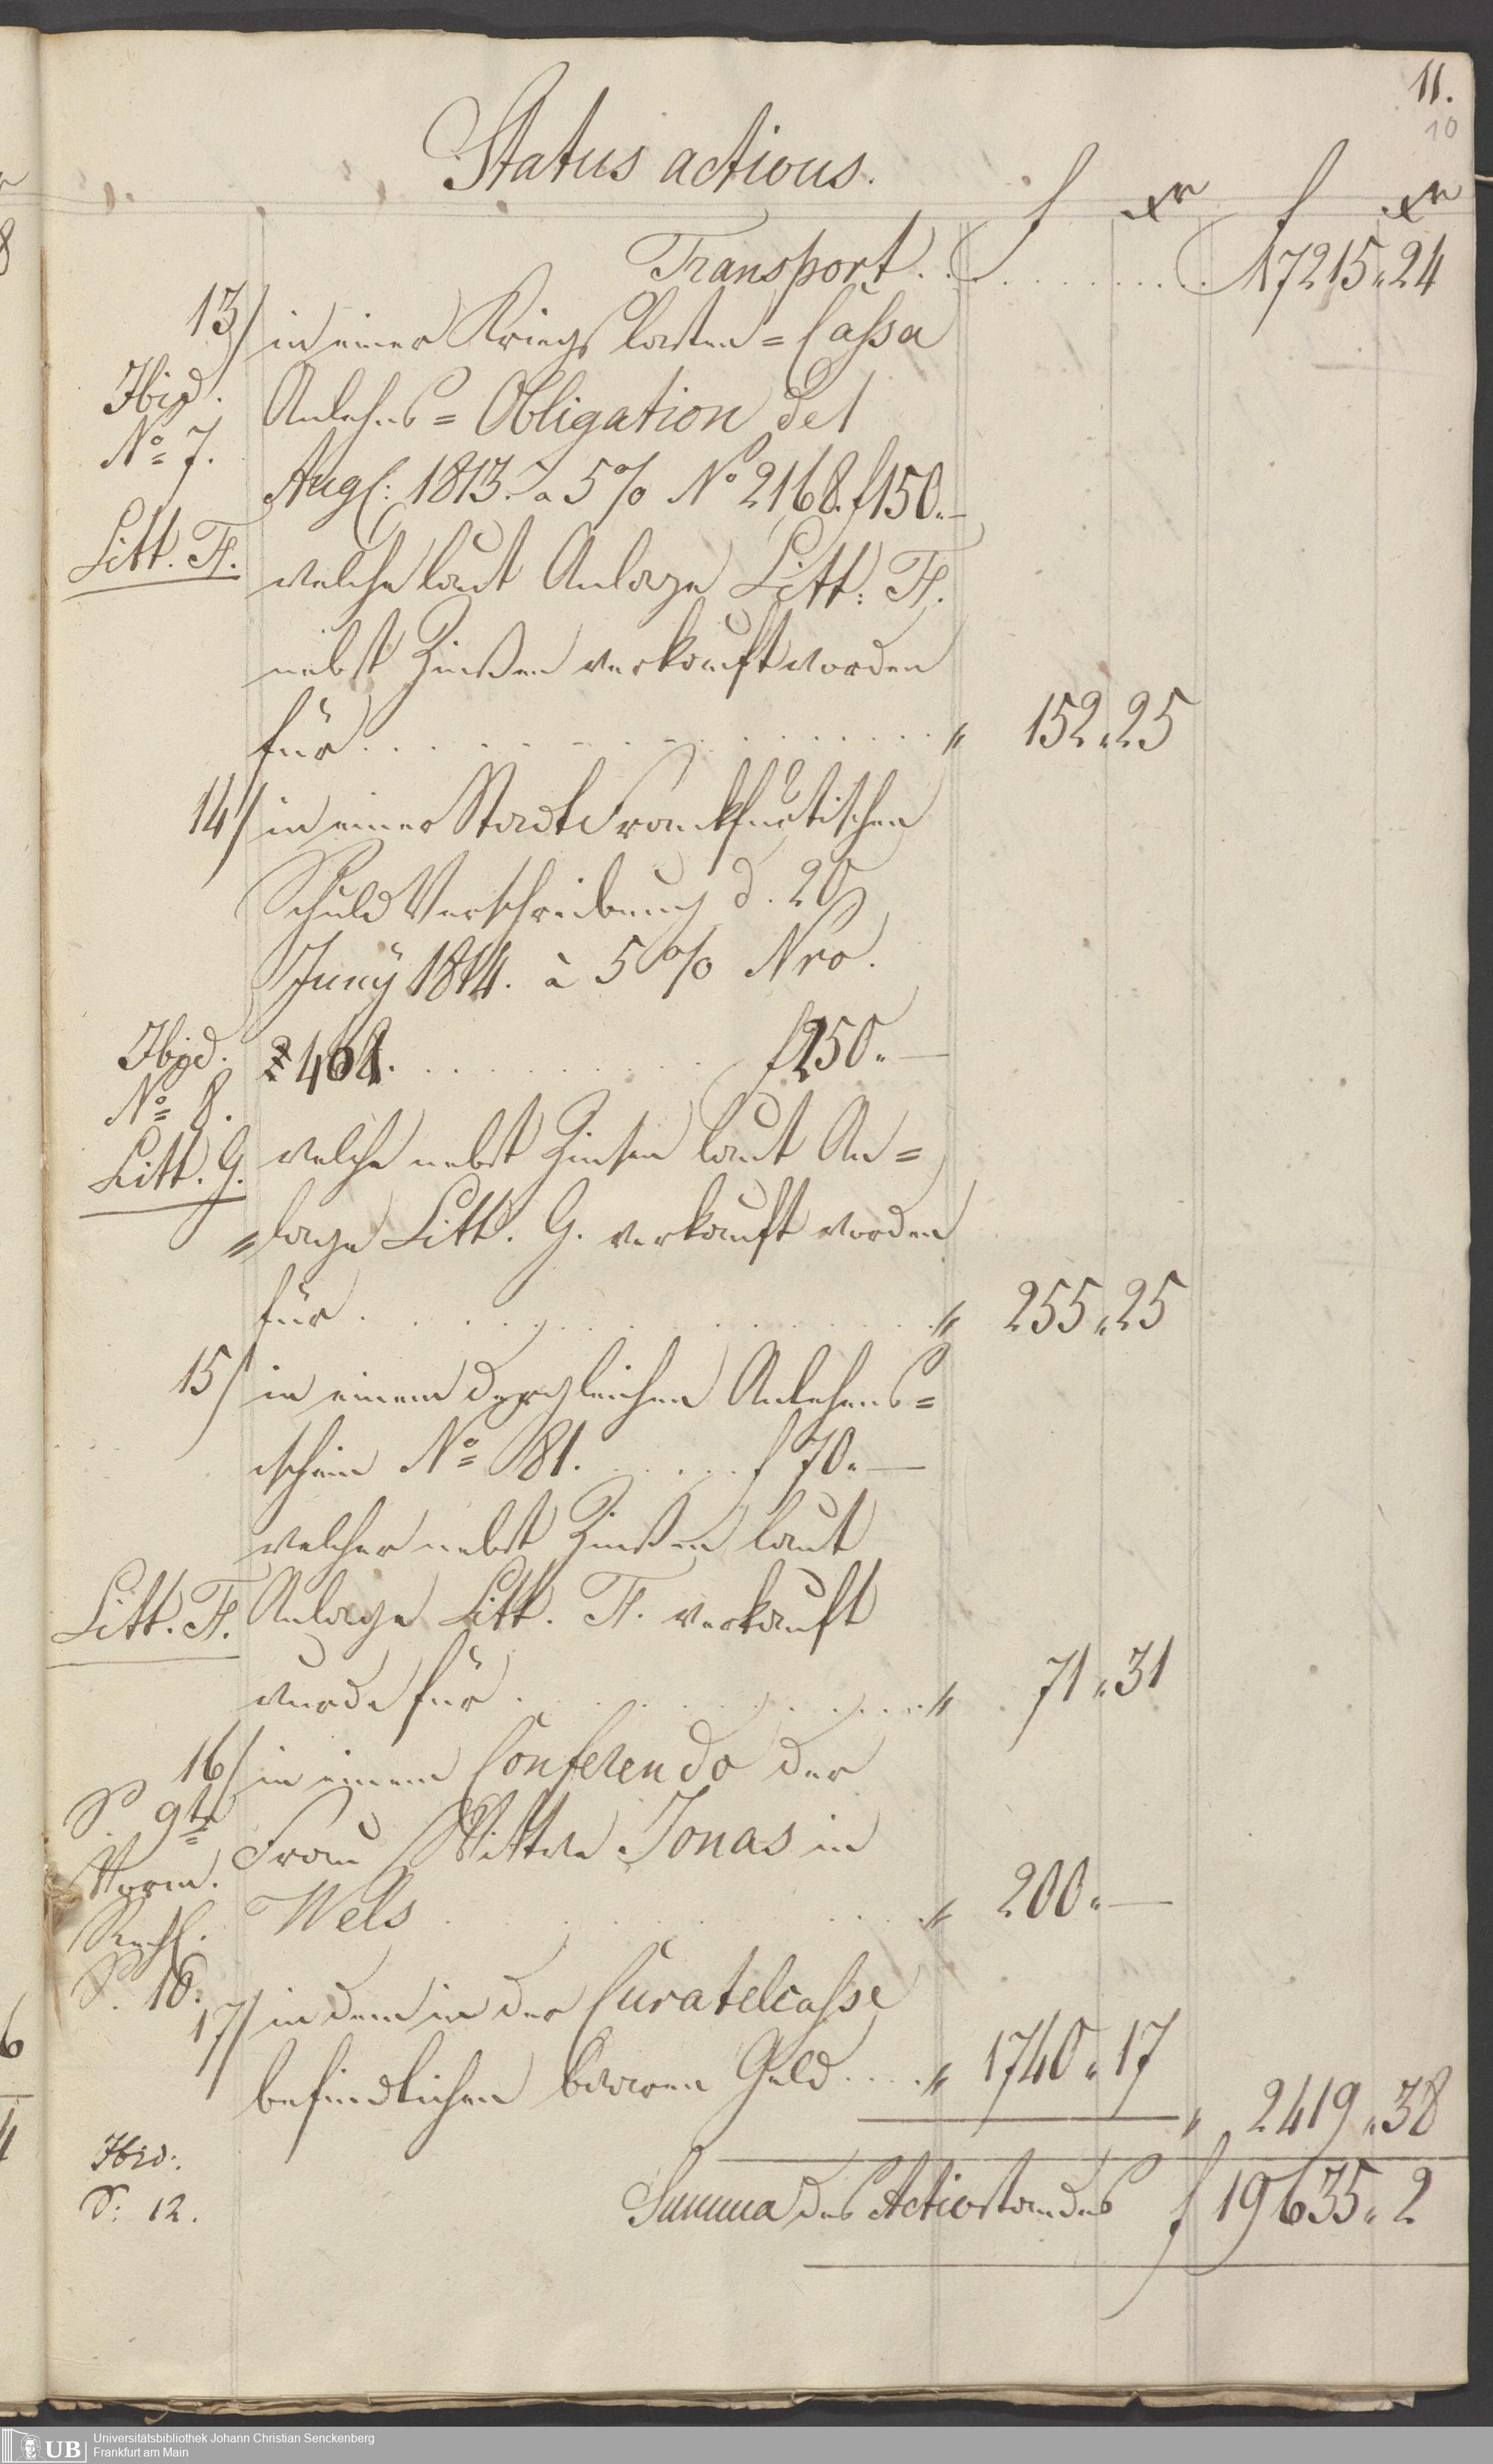 11.
10
Status activus.
f xr f xr
Transport . . . . . . . . 17215 „ 24
13) in einer Kriegs Kasten = Cassa
Ibid. Anlehns = Obligation
No 7. Aug: 1813. a 5% No 2168. f 150. —
Litt. F. welche laut Anlage Litt: F.
nebst Zinßen verkauft worden
für . . . . . . . . „ 152 „ 25
14) in einer Stadt Franckfurtischen
Schuld Verschreibung d. 20
Juny 1814. à 5% Nro.
Ibid. . . . . . . f 250. —
No 8.
Litt. G. welche nebst Zinsen laut An=
„lage Litt. G. verkauft worden
für . . . . . . . . „ 255 „ 25
15) in einem dergleichen Anlehens=
schein No 81. . . . . . f 70. —
welcher nebst Zinßen laut
Litt. F. Anlage Litt. F. verkauft
wurde für . . . . . . . „ 71 „ 31
16) in einem Conferendo der
S. 9te Frau Wittwe Jonas in
Vorm. Wels . . . . . . . „ 200. —
Rech.
S. 16.
17) in dem in der Curatelcasse
befindlichen baaren Geld . . . . „ 1740 „ 17
„ 2419 „ 38
Ibid:
S: 12. Summa des Activstandes f 19635 „ 2
UB Universitätsbibliothek Johann Christian Senckenberg
Frankfurt am Main